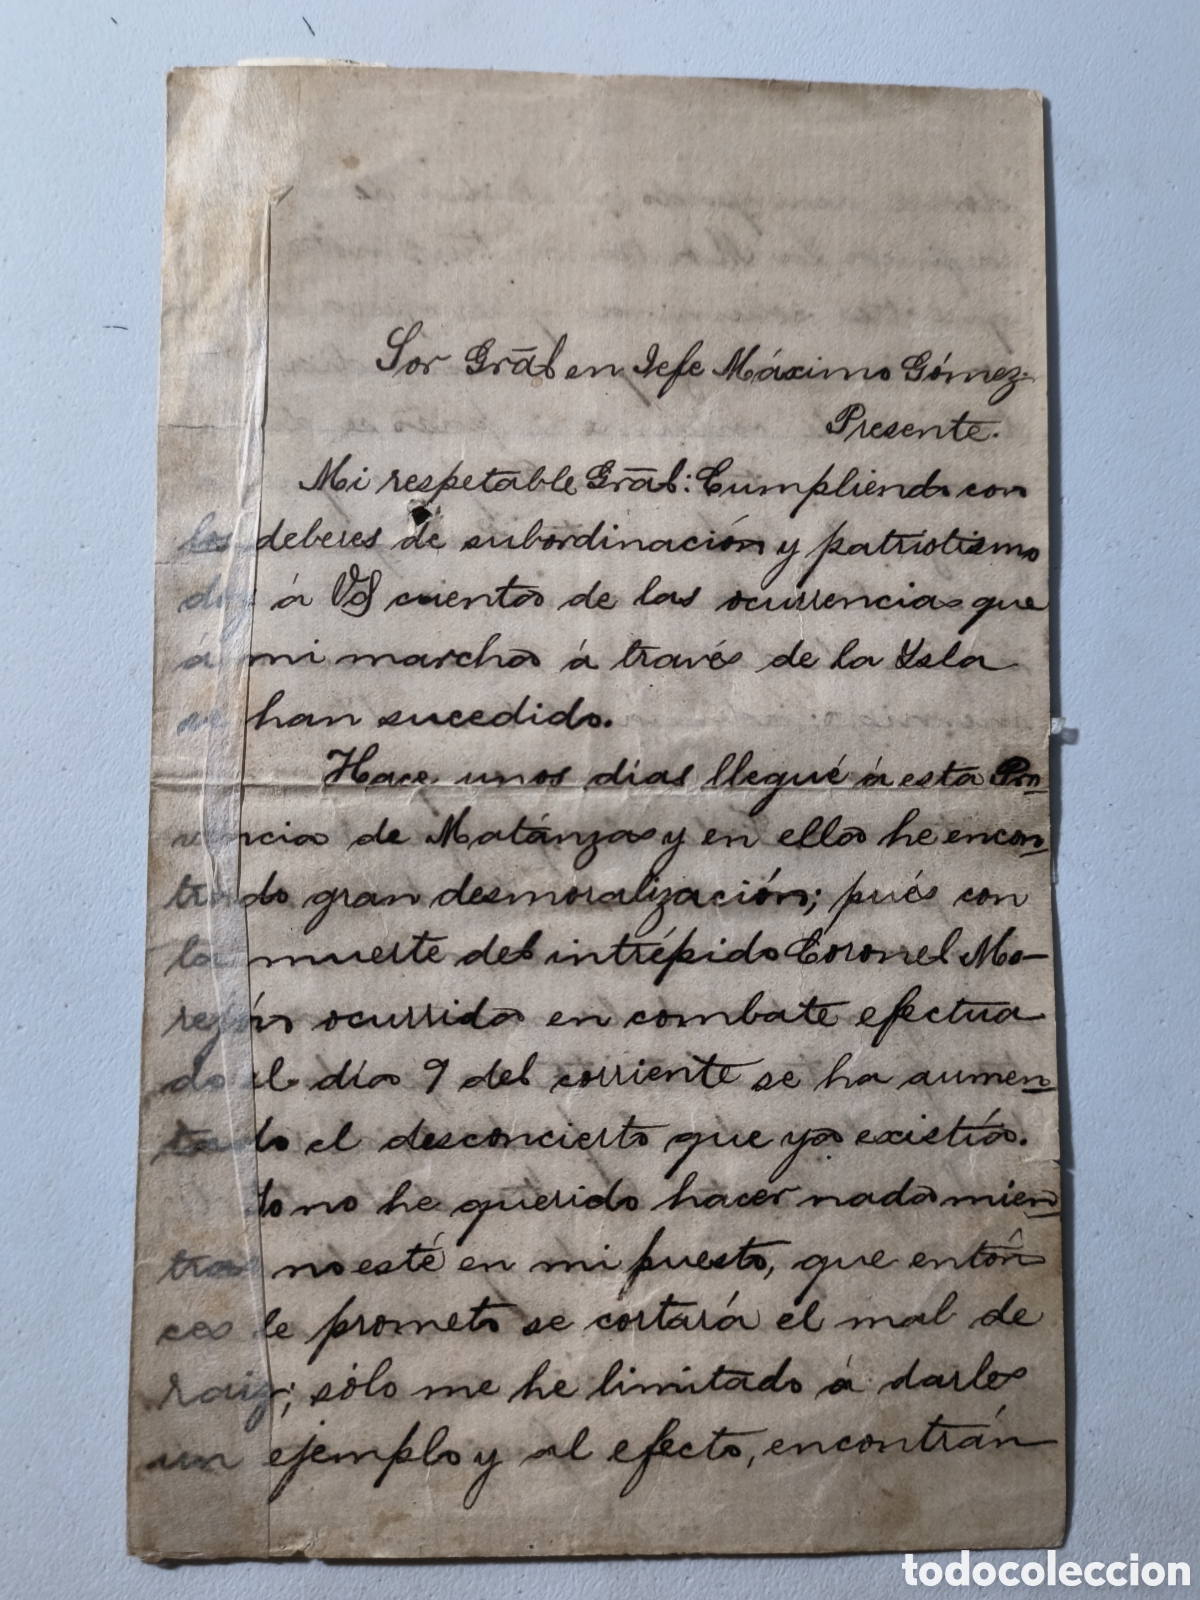 Sor Grāl en Jefe Máximo Gómez.
Presente.
Mi respetable Grāl: Cumpliendo con
los deberes de subordinación y patriotismo
doy á Vd cuenta de las ocurrencias que
á mi marcha á través de la Ysla
se han sucedido.
Hace unos días llegué á esta Pro-
vincia de Matánzas y en ella he encon-
trado gran desmoralización; pués con
la muerte del intrépido Coronel Mo-
rejón ocurrida en combate efectua
do el día 9 del corriente se ha aumen-
tado el desconcierto que ya existía.
Yo no he querido hacer nada mien-
tras no esté en mi puesto, que entón
ces le prometo se cortará el mal de
raiz; sólo me he limitado á darles
un ejemplo y al efecto, encontrán
todocoleccion